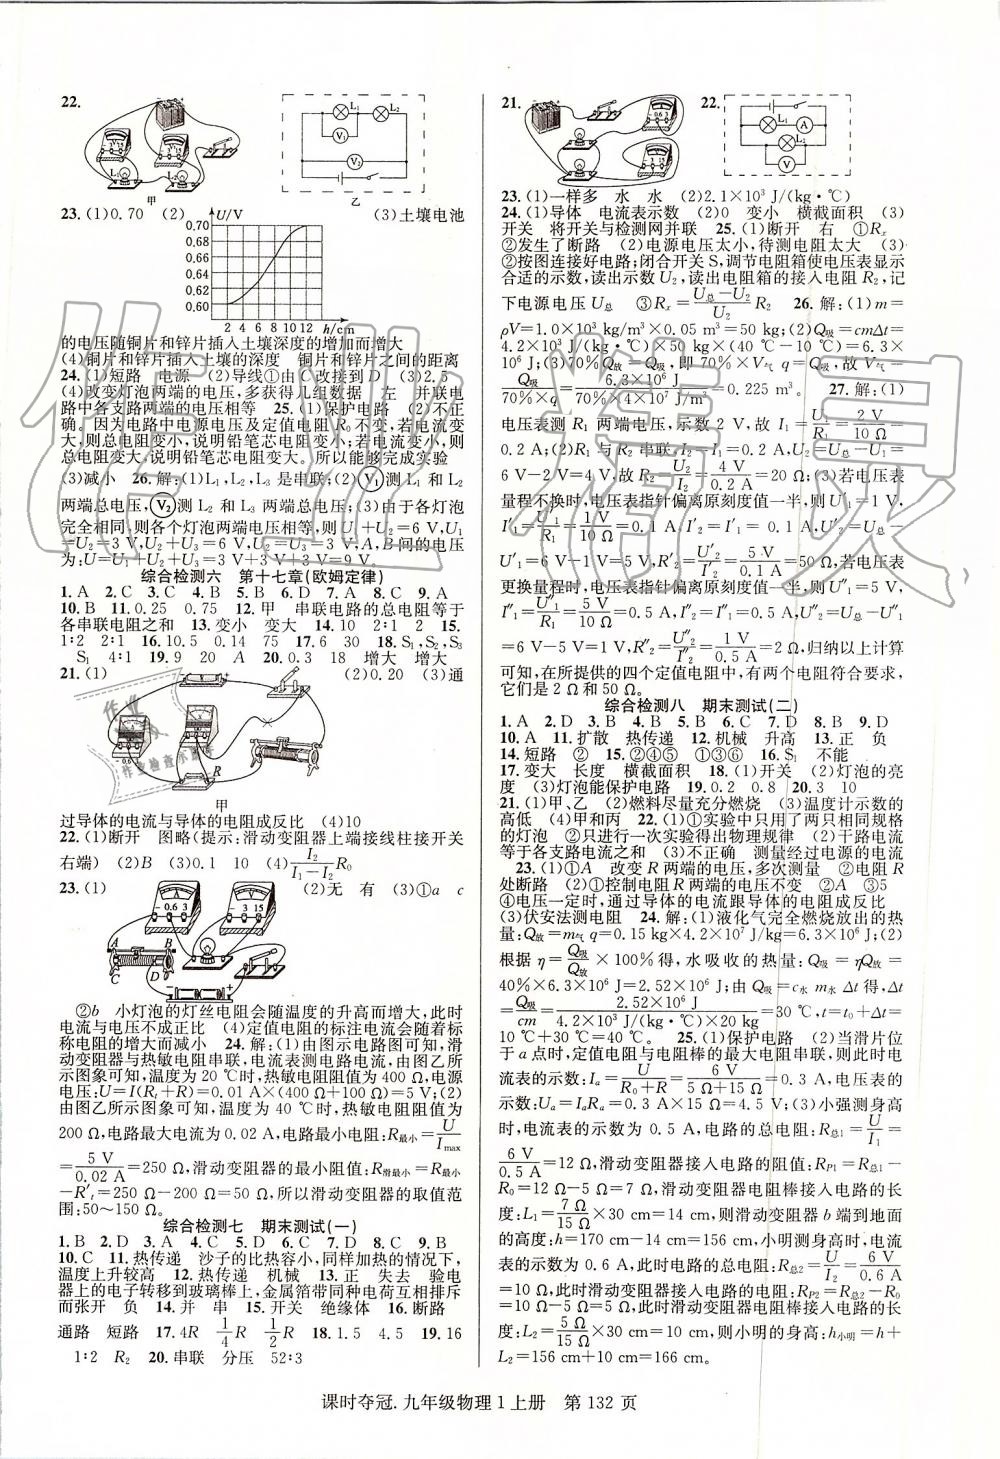 22.
甲
乙
23.(1)0.70 (2) U/V (3)土壤电池
0.70
0.68
0.66
0.64
0.62
0.60
2 4 6 8 10 12 h/cm
的电压随铜片和锌片插入土壤深度的增加而增大
(4)铜片和锌片插入土壤的深度 铜片和锌片之间的距离
24.(1)短路 电源 (2)导线①由C改接到D (3)2.5
(4)改变灯泡两端的电压,多获得几组数据 左 并联电
路中各支路两端的电压相等 25.(1)保护电路 (2)不正
确。因为电路中电源电压及定值电阻R₀不变,若电流变
大,则总电阻变小,说明铅笔芯电阻变小;若电流变小,则
总电阻变大,说明铅笔芯电阻变大。所以能够完成实验
(3)减小 26.解:(1)L₁,L₂,L₃是串联;(2)V₁测L₁和L₂
两端总电压,V₂测L₂和L₃两端总电压;(3)由于各灯泡
完全相同,则各个灯泡两端电压相等,则U₁+U₂=6 V,U₁
=U₂=3 V,U₂+U₃=6 V,U₂=U₃=3 V,A、B间的电压
为:U=U₁+U₂+U₃=3 V+3 V+3 V=9 V。
综合检测六 第十七章(欧姆定律)
1.A 2.C 3.C 4.B 5.B 6.D 7.A 8.C 9.A
10.B 11.0.25 0.75 12.甲 串联电路的总电阻等于
各串联电阻之和 13.变小 变大 14.10 2∶1 2 15.
1∶2 2∶1 16.10.5 0.14 75 17.6 30 18.S₁,S₂,S₃
S₁ 4∶1 19.9 20 A 20.0.3 18 增大 增大
21.(1) (2)0.20 (3)通
甲
过导体的电流与导体的电阻成反比 (4)10
22.(1)断开 图略(提示:滑动变阻器上端接线柱接开关
右端) (2)B (3)0.1 10 (4)I₂/(I₁-I₂)R₀
23.(1) (2)无 有 (3)①a c
②b 小灯泡的灯丝电阻会随温度的升高而增大,此时
电流与电压不成正比 (4)定值电阻的标注电流会随着标
称电阻的增大而减小 24.解:(1)由图示电路图可知,滑
动变阻器与热敏电阻串联,电流表测电路电流,由图乙所
示图象可知,温度为20 ℃时,热敏电阻阻值为400 Ω,电源
电压:U=I(Rₜ+R)=0.01 A×(400 Ω+100 Ω)=5 V;(2)
由图乙所示图象可知,温度为40 ℃时,热敏电阻阻值为
200 Ω,电路最大电流为0.02 A,电路最小电阻:R最小=U/Imax
=5 V/0.02 A=250 Ω,滑动变阻器的最小阻值:R滑最小=R最小
-R′ₜ=250 Ω-200 Ω=50 Ω,所以滑动变阻器的取值范
围:50~150 Ω。
综合检测七 期末测试(一)
1.B 2.D 3.A 4.C 5.D 6.C 7.D 8.C 9.B
10.C 11.热传递 沙子的比热容小,同样加热的情况下,
温度上升较高 12.热传递 机械 13.正 失去 验电
器上的电子转移到玻璃棒上,金属箔带同种电荷互相排斥
而张开 负 14.并 串 15.开关 绝缘体 16.断路
通路 短路 17.4R 1/4R 1/2R 18.1.5 4.5 19.16
1∶2 R₂ 20.串联 分压 52∶3
21. 22.
23.(1)一样多 水 水 (2)2.1×10³ J/(kg·℃)
24.(1)导体 电流表示数 (2)0 变小 横截面积 (3)
开关 将开关与检测网并联 25.(1)断开 右 ①Rₓ
②发生了断路 (2)电源电压太小,待测电阻太大 (3)
②按图连接好电路;闭合开关S,调节电阻箱使电压表显示
合适的示数,读出示数U₂,读出电阻箱的接入电阻R₂,记
下电源电压U总 ③Rₓ=(U总-U₂)/U₂ R₂ 26.解:(1)m=
ρV=1.0×10³ kg/m³×0.05 m³=50 kg;(2)Q吸=cmΔt=
4.2×10³ J/(kg·℃)×50 kg×(40 ℃-10 ℃)=6.3×
10⁶ J;(3)70%Q放=Q吸,即70%×V气q=Q吸,故V气=
Q吸/(70%×q)=6.3×10⁶ J/(70%×4×10⁷ J/m³)=0.225 m³。 27.解:(1)
电压表测R₁两端电压,示数2 V,故I₁=U₁/R₁=2 V/10 Ω=
0.2 A;(2)R₁与R₂串联,I₂=I₁=0.2 A,U₂=U总-U₁=
6 V-2 V=4 V,故R₂=U₂/I₂=4 V/0.2 A=20 Ω;(3)若电压表
量程不换时,电压表指针偏离原刻度值一半,则U′₁=1 V,
I′₁=U′₁/R₁=1 V/10 Ω=0.1 A,I′₂=I′₁=0.1 A,U′₂=U总-
U′₁=6 V-1 V=5 V,R′₂=U′₂/I′₂=5 V/0.1 A=50 Ω,若电压表
更换量程时,电压表指针偏离原刻度值一半,则U″₁=5 V,
I″₁=U″₁/R₁=5 V/10 Ω=0.5 A,I″₂=I″₁=0.5 A,U″₂=U总-U″₁
=6 V-5 V=1 V,R″₂=U″₂/I″₂=1 V/0.5 A=2 Ω,归纳以上计算
可知,在所提供的四个定值电阻中,有两个电阻符合要求,
它们是2 Ω和50 Ω。
综合检测八 期末测试(二)
1.A 2.D 3.B 4.B 5.B 6.C 7.D 8.B 9.D
10.A 11.扩散 热传递 12.机械 升高 13.正 负
14.短路 ② 15.②④⑤ ①③⑥ 16.S₁ 不能
17.变大 长度 横截面积 18.(1)开关 (2)灯泡的亮
度 (3)灯泡能保护电路 19.0.2 0.8 20.3 10
21.(1)甲、乙 (2)燃料尽量充分燃烧 (3)温度计示数的
高低 (4)甲和丙 22.(1)①实验中只用了两只相同规格
的灯泡 ②只进行一次实验得出物理规律 (2)干路电流
等于各支路电流之和 (3)不正确 测量经过电源的电流
23.(1)①A 改变R两端的电压,多次测量 ②电阻R
处断路 (2)①控制电阻R两端的电压不变 ②A ③5
④电压一定时,通过导体的电流跟导体的电阻成反比
(3)伏安法测电阻 24.解:(1)液化气完全燃烧放出的热
量:Q放=m气q=0.15 kg×4.2×10⁷ J/kg=6.3×10⁶ J;(2)
根据η=Q吸/Q放×100%得,水吸收的热量:Q吸=ηQ放=
40%×6.3×10⁶ J=2.52×10⁶ J;(3)由Q吸=c水m水Δt得,Δt
=Q吸/cm=2.52×10⁶ J/(4.2×10³ J/(kg·℃)×20 kg)=30 ℃,t=t₀+Δt=
10 ℃+30 ℃=40 ℃。 25.(1)保护电路 (2)当滑片位
于a点时,定值电阻与电阻棒的最大电阻串联,则此时电
流表的示数:Iₐ=U/(R₀+R)=6 V/(5 Ω+15 Ω)=0.3 A,电压表的
示数:Uₐ=IₐRₐ=0.3 A×15 Ω=4.5 V;(3)小强测身高
时,电流表的示数为0.5 A,电路的总电阻:R总1=U/I₁=
6 V/0.5 A=12 Ω,滑动变阻器接入电路的阻值:RP1=R总1-
R₀=12 Ω-5 Ω=7 Ω,滑动变阻器电阻棒接入电路的长
度:L₁=7 Ω/15 Ω×30 cm=14 cm,则滑动变阻器b端到地面
的高度:h=170 cm-14 cm=156 cm,小明测身高时,电流
表的示数为0.6 A,此时电路的总电阻:R总2=U/I₂=6 V/0.6 A
=10 Ω,此时滑动变阻器接入电路的电阻:RP2=R总2-R₀
=10 Ω-5 Ω=5 Ω,滑动变阻器电阻棒接入电路的长
度:L₂=5 Ω/15 Ω×30 cm=10 cm,则小明的身高:h小明=h+
L₂=156 cm+10 cm=166 cm。
课时夺冠.九年级物理1上册 第132页